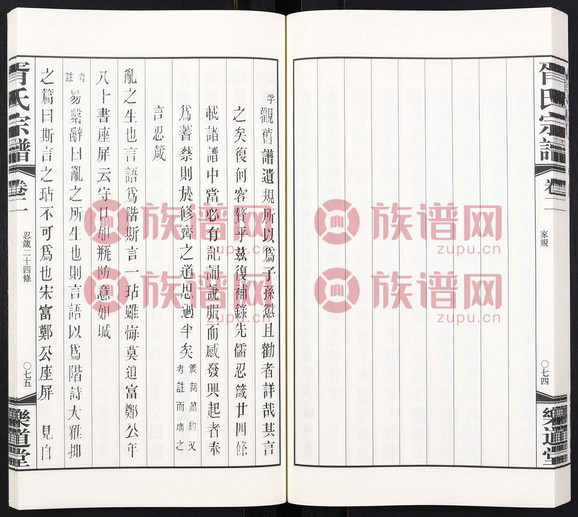 胥氏宗譜
卷二
家規
〇七四
樂道堂
觀舊譜遺規所以爲子孫懲且勸者詳哉其言
之矣復何容贅乎茲復補錄先儒忍箴廿四條
載諸譜中當必有記誦說服而感發興起者奉
爲蓍蔡則於修齊之道思過半矣
言忍箴
亂之生也言語爲階斯言一玷雖悔莫追富鄭公年
八十書座屏云守口如瓶防意如城
考註
易繫辭曰亂之所生也則言語以爲階詩大雅抑
之篇曰斯言之玷不可爲也宋富鄭公座屏 見自
胥氏宗譜
卷二
忍箴二十四條
〇七五
樂道堂
族谱网
zupu.cn
族谱网
zupu.cn
族谱网
zupu.cn
族谱网
zupu.cn